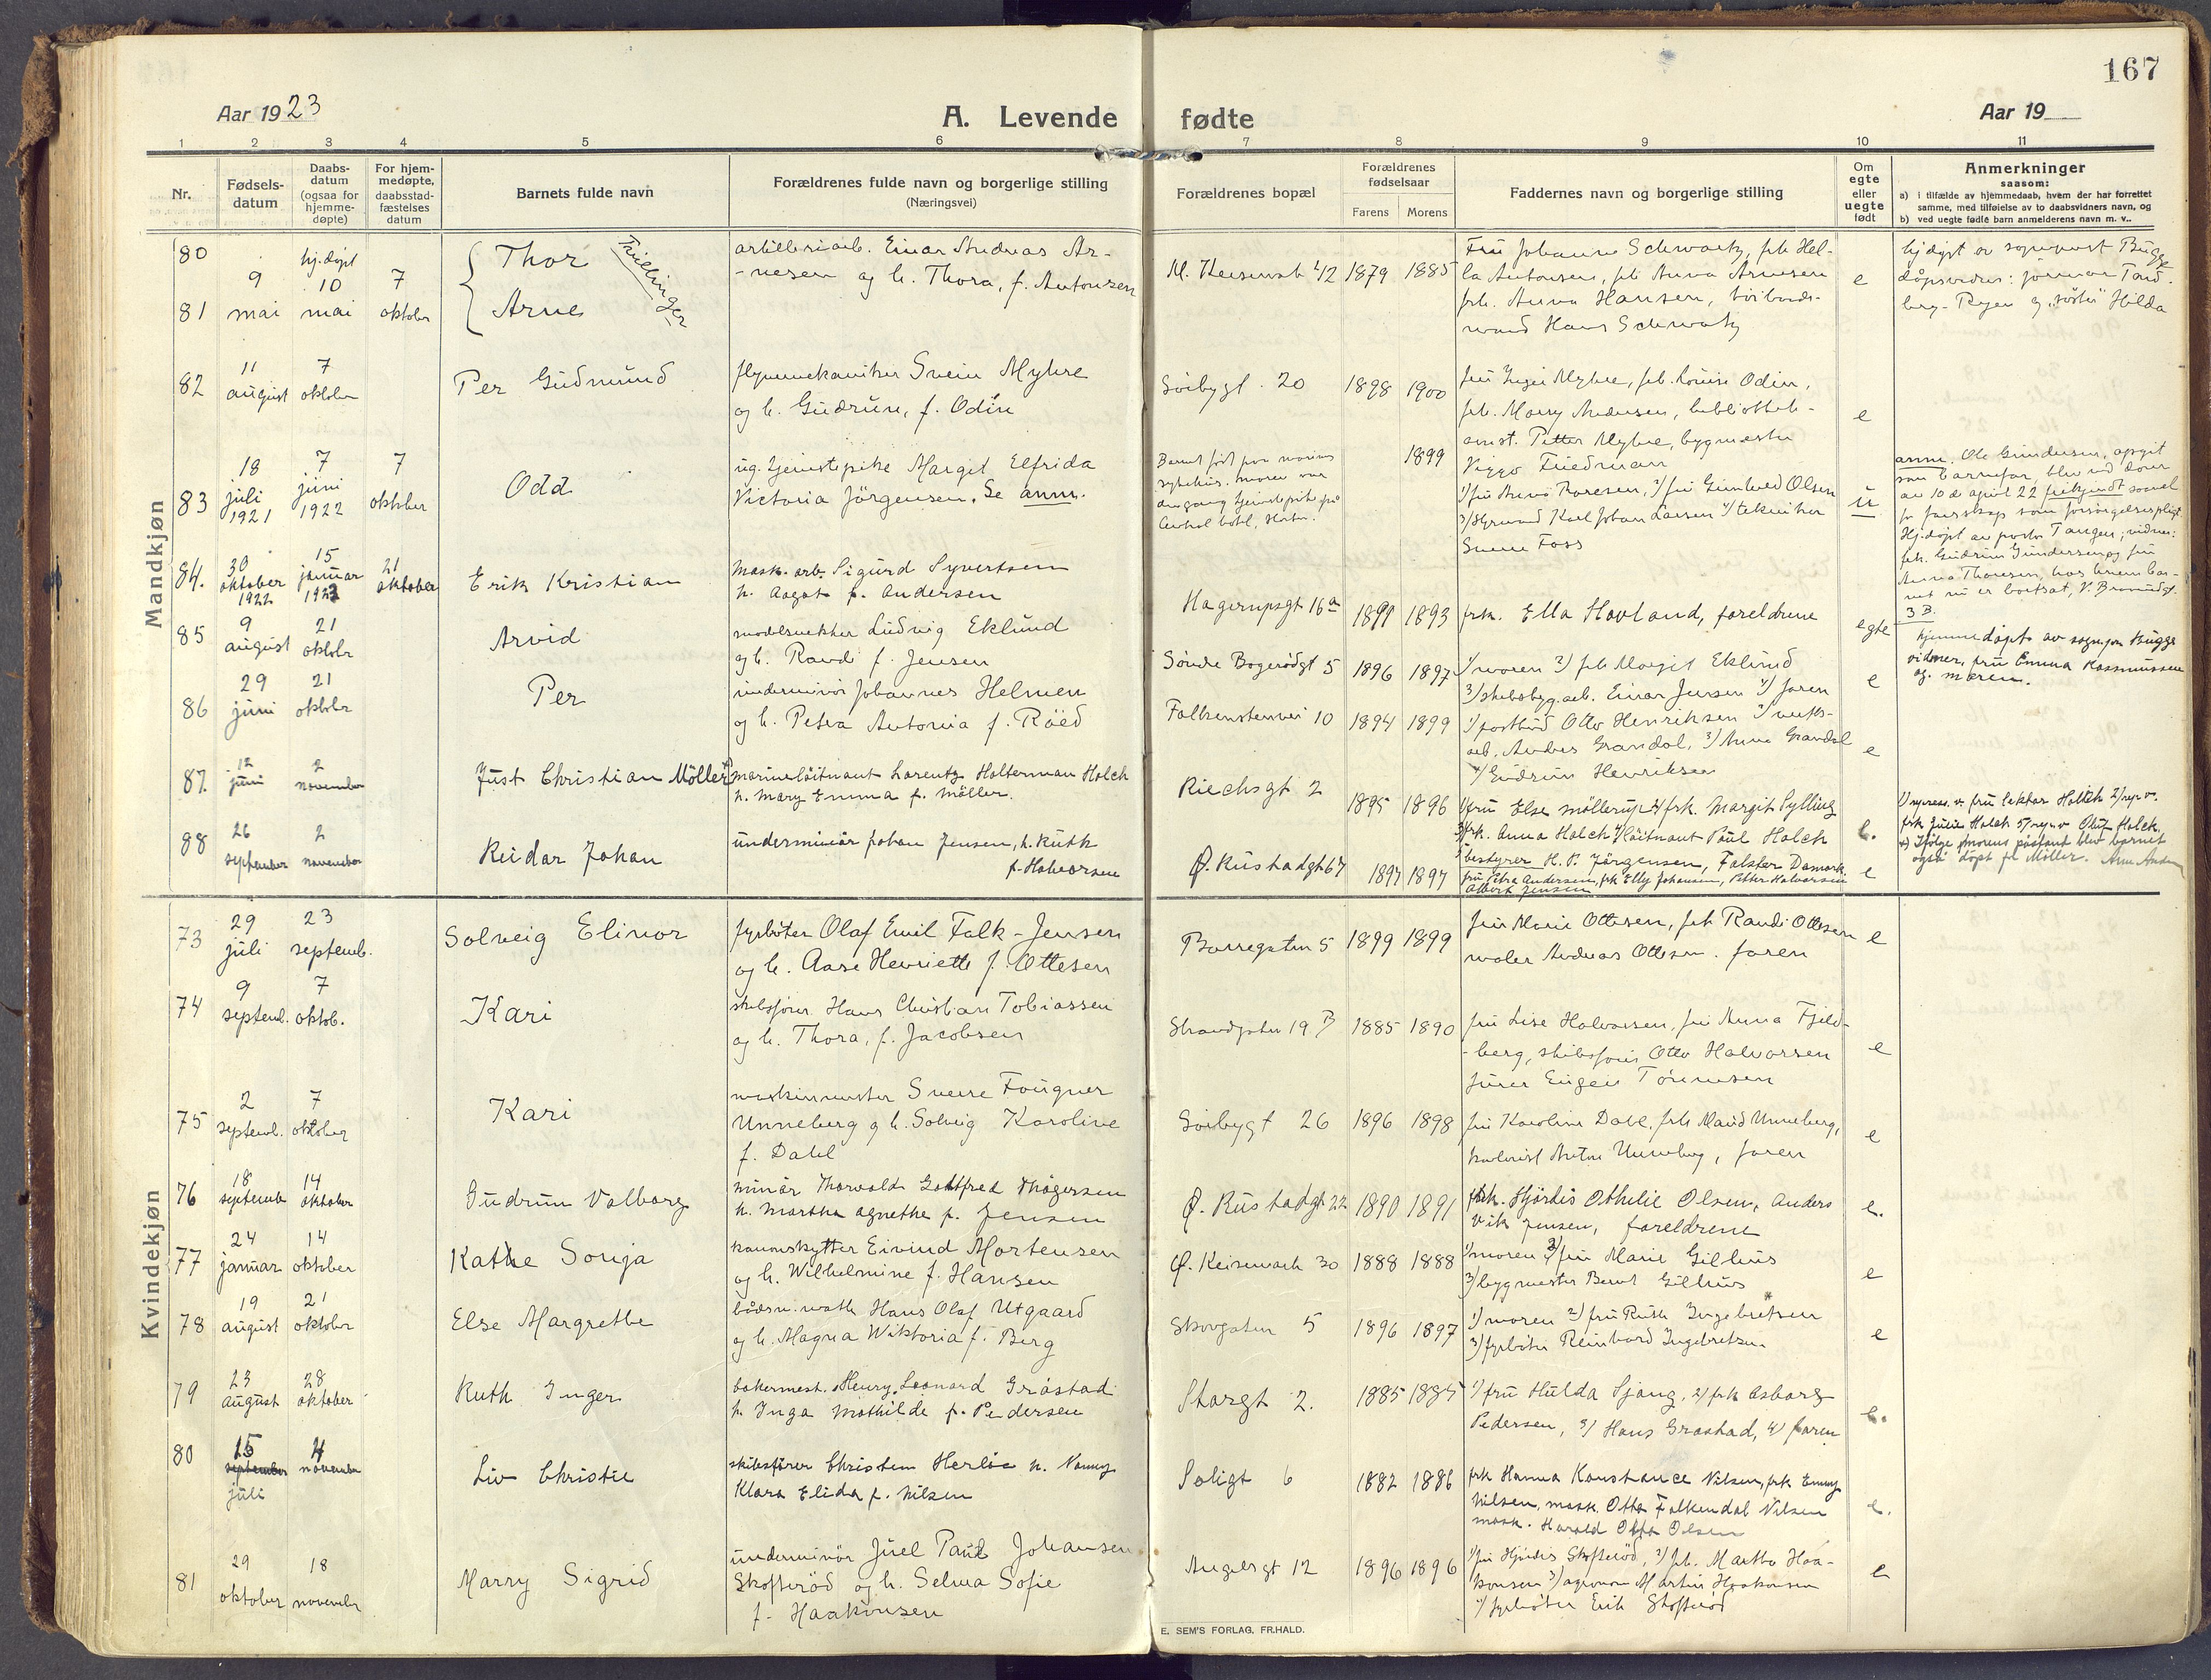 167
Aar 1923
A. Levende fødte
Aar 19
1 2 3 4 5 6 7 8 9 10 11
Nr.
Fødsels-
datum
Daabs-
datum
(ogsaa for
hjemme-
døpte)
For hjem-
medøpte,
daabsstad-
fæstelses
datum
Barnets fulde navn
Forældrenes fulde navn og borgerlige stilling
(Næringsvei)
Forældrenes bopæl
Forældrenes
fødselsaar
Farens Morens
Faddernes navn og borgerlige stilling
Om
egte
eller
uegte
født
Anmerkninger
saasom:
a) i tilfælde av hjemmedaab, hvem der har forrettet
samme, med tilføielse av to daabsvidners navn, og
b) ved uegte fødte barn anmelderens navn m. v..
Mandkjøn
80
81
9
mai
hj.døpt
10
mai
7
oktober
Thor
Arne
Trillinger
artilleriarb. Einar Andreas Ar-
-nesen og h. Thora, f. Antonsen
1879 1885
Fru Johanne Schwartz, frk Hel-
la Antonsen, frk Anna Arnesen
frk. Anna Hansen,
mand Hans Schwartz
e
hj.døpt av sogneprest Bugge
døpsvidner: jormor Tand-
berg-Ryen og "søster" Hilda
82
11
august
7
oktober
Per Gudmund
flymekaniker Svein Myhre
og h. Gudrun, f. Odin
Søebygt. 20
1898 1900
fru Inga Myhre, frk. Louise Odin,
frk. Marry Andersen, bibliothek-
Petter Myhre, bygmester
Viggo Friedman
e
83
18
juli
1921
7
juni
1922
7
oktober
Odd
ug. tjenestepike Margit Elfrida
Victoria Jørgensen. Se anm.
Barnet født paa morens
sykehus. moren var
dengang tjenestepike på
Central hotel, Horten.
1899
1/ fru Anna Thoresen, 2/ fru Gunhild Olsen
3/ styrmand Karl Johan Larsen 4/ tekniker
Sverre Foss
u
anm. Ole Gundersen, opgit
som barnefar, blev ved dom
av 10de april 22 frikjendt saavel
for farskap som forsørgelsespligt.
Hj.døpt av pastor Tangen, vidner:
frk. Gudrun Gundersen og fru
Anna Thoresen, hos hvem bar-
net nu er bortsat, V. Bromsgt.
3 B.
84.
30
oktober
1922
15
januar
1923
21
oktober
Erik Kristian
Mask. arb. Sigurd Syvertsen
h. Aagot f. Andersen
Hagerupsgt 16a
1891 1893
frk. Ella Hovland, foreldrene
egte
hjemmedøpt av sognepr. Bugge
vidner, fru Emma Rasmussen
og moren.
85
9
august
21
oktobr
Arvid
modelsnekker Ludvig Eklund
og h. Randi f. Jensen
Søndre Bogerødgt 5
1896 1897
1/ moren 2/ frk Margit Eklund
3/ skibsbyg.arb. Einar Jensen 4/ faren
e
86
29
juni
21
oktobr
Per
underminør Johannes Helmen
og h. Petra Antonia f. Røed
Falkenstenvei 10
1894 1899
1/ postbud Otto Henriksen 2/ verfts-
arb. Anders Grandal, 3/ Anna Grandal
4/ Gudrun Henriksen
e
87.
12
juni
2
november
Just Christian Möller
marineløitnant Lorentz Holterman Holck
h. Mary Emma f. Möller.
Riechsgt 2
1895 1896
1/ fru Else Möllerup 2/ frk. Margit Sylling
3/ frk. Anna Holck 4/ løitnant Paul Holck
5 bestyrer H. P. Jørgensen, Falster Damark
e.
1) repress. v. fru lektor Holtek 2/ rep v.
frk Julie Holck 5/ rep v Oluf Holck.
x) Ifølge morens påstand blev barnet
også døpt f. Möller.
88
26
september
2
november
Reidar Johan
underminør Johan Jensen, h. Ruth
f. Halvorsen
Ø. Rustadgt 67
1897 1897
fru Petra Andersen, frk Elly Johansen, Petter Halvorsen
Albert Jensen
e
Kvindekjøn
73
29
juli
23
septemb.
Solveig Elinor
fyrbøter Olaf Emil Falk-Jensen
og h. Aase Henriette f. Ottesen
Borregaten 5
1899 1899
fru Marie Ottesen, frk Randi Ottesen
maler Andreas Ottesen. faren
e
74
9
septemb.
7
oktob.
Kari
skibsfører Hans Christian Tobiassen
og h. Thora, f. Jacobsen
Strandgaten 19 B
1885 1890
fru Lise Halvorsen, fru Anna Fjeld-
-berg, skibsfører Otto Halvorsen
fører Eugen Tønnesen
e
75
2
septemb.
7
oktober
Kari
maskinmester Sverre Fougner
Unneberg og h. Solveig Karoline
f. Dahl
Søebygt 26
1896 1898
fru Karoline Dahl, frk Maud Unneberg,
Anton Unneberg, faren
e
76
18
septemb
14
oktober
Gudrun Valborg
minør Thorvald Gottfred Thøgersen
h. Martha Agnethe f. Jensen
Ø. Rustadgt 22
1890 1891
frk. Hjördis Othilie Olsen, Anders
Vik Jensen, foreldrene
e.
77
24
januar
14
oktober
Kathe Sonja
kanonskytter Eivind Mortensen
og h. Wilhelmine f. Hansen
Ø. Keisemark 30
1888 1888
1/ moren 2/ fru Marie Gilhus
3/ bygmester Bernt Gilhus
e
78
19
august
21
oktober
Else Margrethe
baadsm.math Hans Olaf Utgaard
og h. Magna Wiktoria f. Berg
Skovgaten 5
1896 1897
1/ moren 2) fru Ruth Ingebretsen
3/ fyrbøter Reinhard Ingebretsen
e
79
23
august
28
oktober
Ruth Inger
bakermest. Henry Leonard Gråstad
h. Inga Mathilde f. Pedersen
Storgt 2.
1885 1885
1/ fru Hulda Sjong, 2/ frk Asborg
Pedersen, 3/ Hans Grastad, 4) faren
e.
80
15
september
juli
4
november
Liv Christie
skibsfører Christen Herløe h. Nanny
Klara Elida f. Nilsen
Soligt 6
1882 1886
frk Hanna Konstance Nilsen, frk Emmy
Nilsen, mask. Otto Falkendal Nilsen
mask. Harald Otto Olsen
e.
81
29
oktober
18
november
Marry Sigrid
underminør Juel Paul Johansen
Skofterød og h. Selma Sofie
f. Haakonsen
Augersgt 12
1896 1896
1/ fru Hjørdis Skofterød, 2/ frk. Martha Haa-
konsen 3/ agronom Martin Haakonsen
4/ fyrbøter Erik Skofterød
e
E. SEM'S FORLAG, FR.HALD.